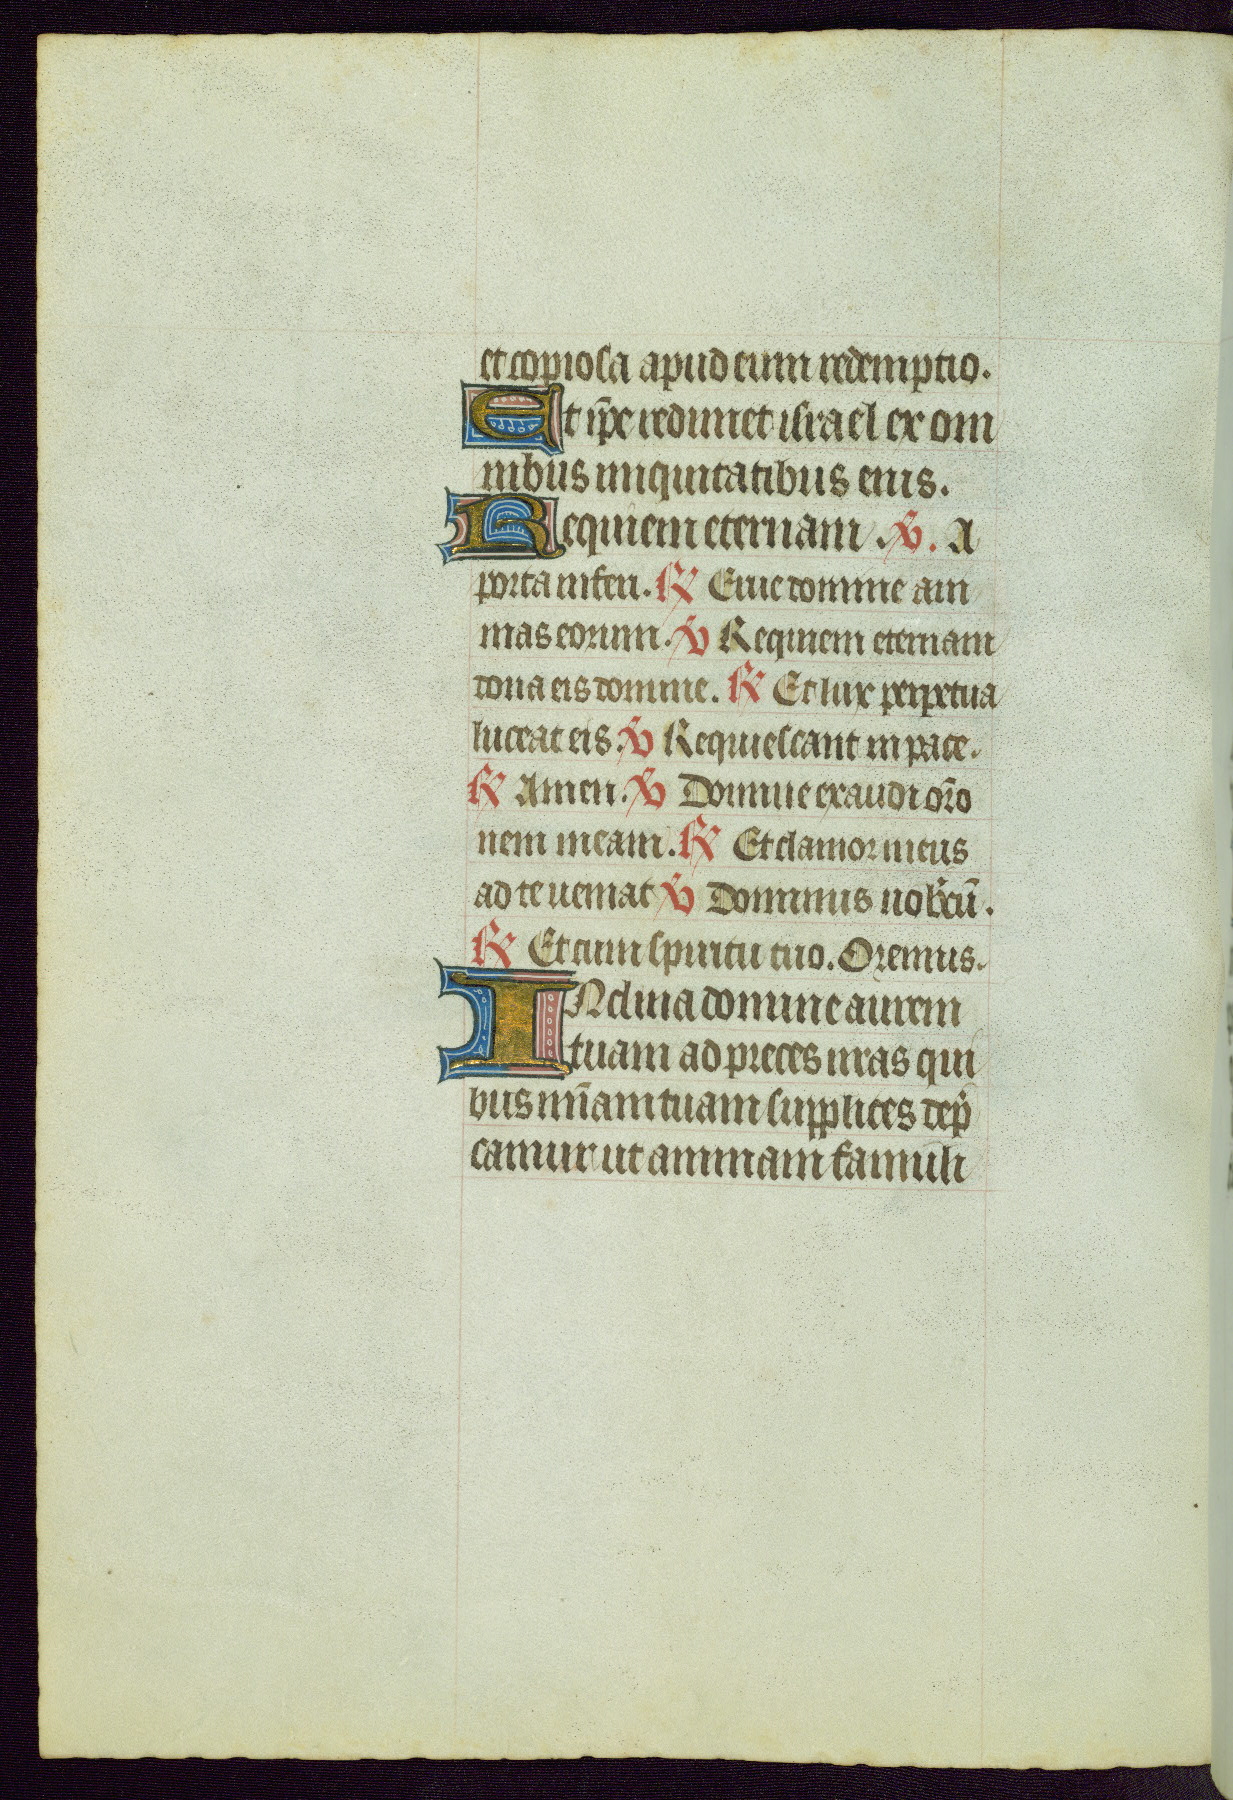 et copiosa apud eum redemptio.
Et ip̄e redimet israel ex om
nibus iniquitatibus eius.
Requiem eternam. ℣. A
porta inferi. ℟ Erue domine ani
mas eorum. ℣ Requiem eternam
dona eis domine. ℟ Et lux perpetua
luceat eis. ℣ Requiescant in pace.
℟ Amen. ℣ Domine exaudi or̄o
nem meam. ℟ Et clamor meus
ad te ueniat ℣ Dominus nobcū.
℟ Et cum spiritu tuo. Oremus.
INclina domine aurem
tuam ad preces nr̄as qui
bus mīam tuam supplices dep̄
camur ut animam famuli